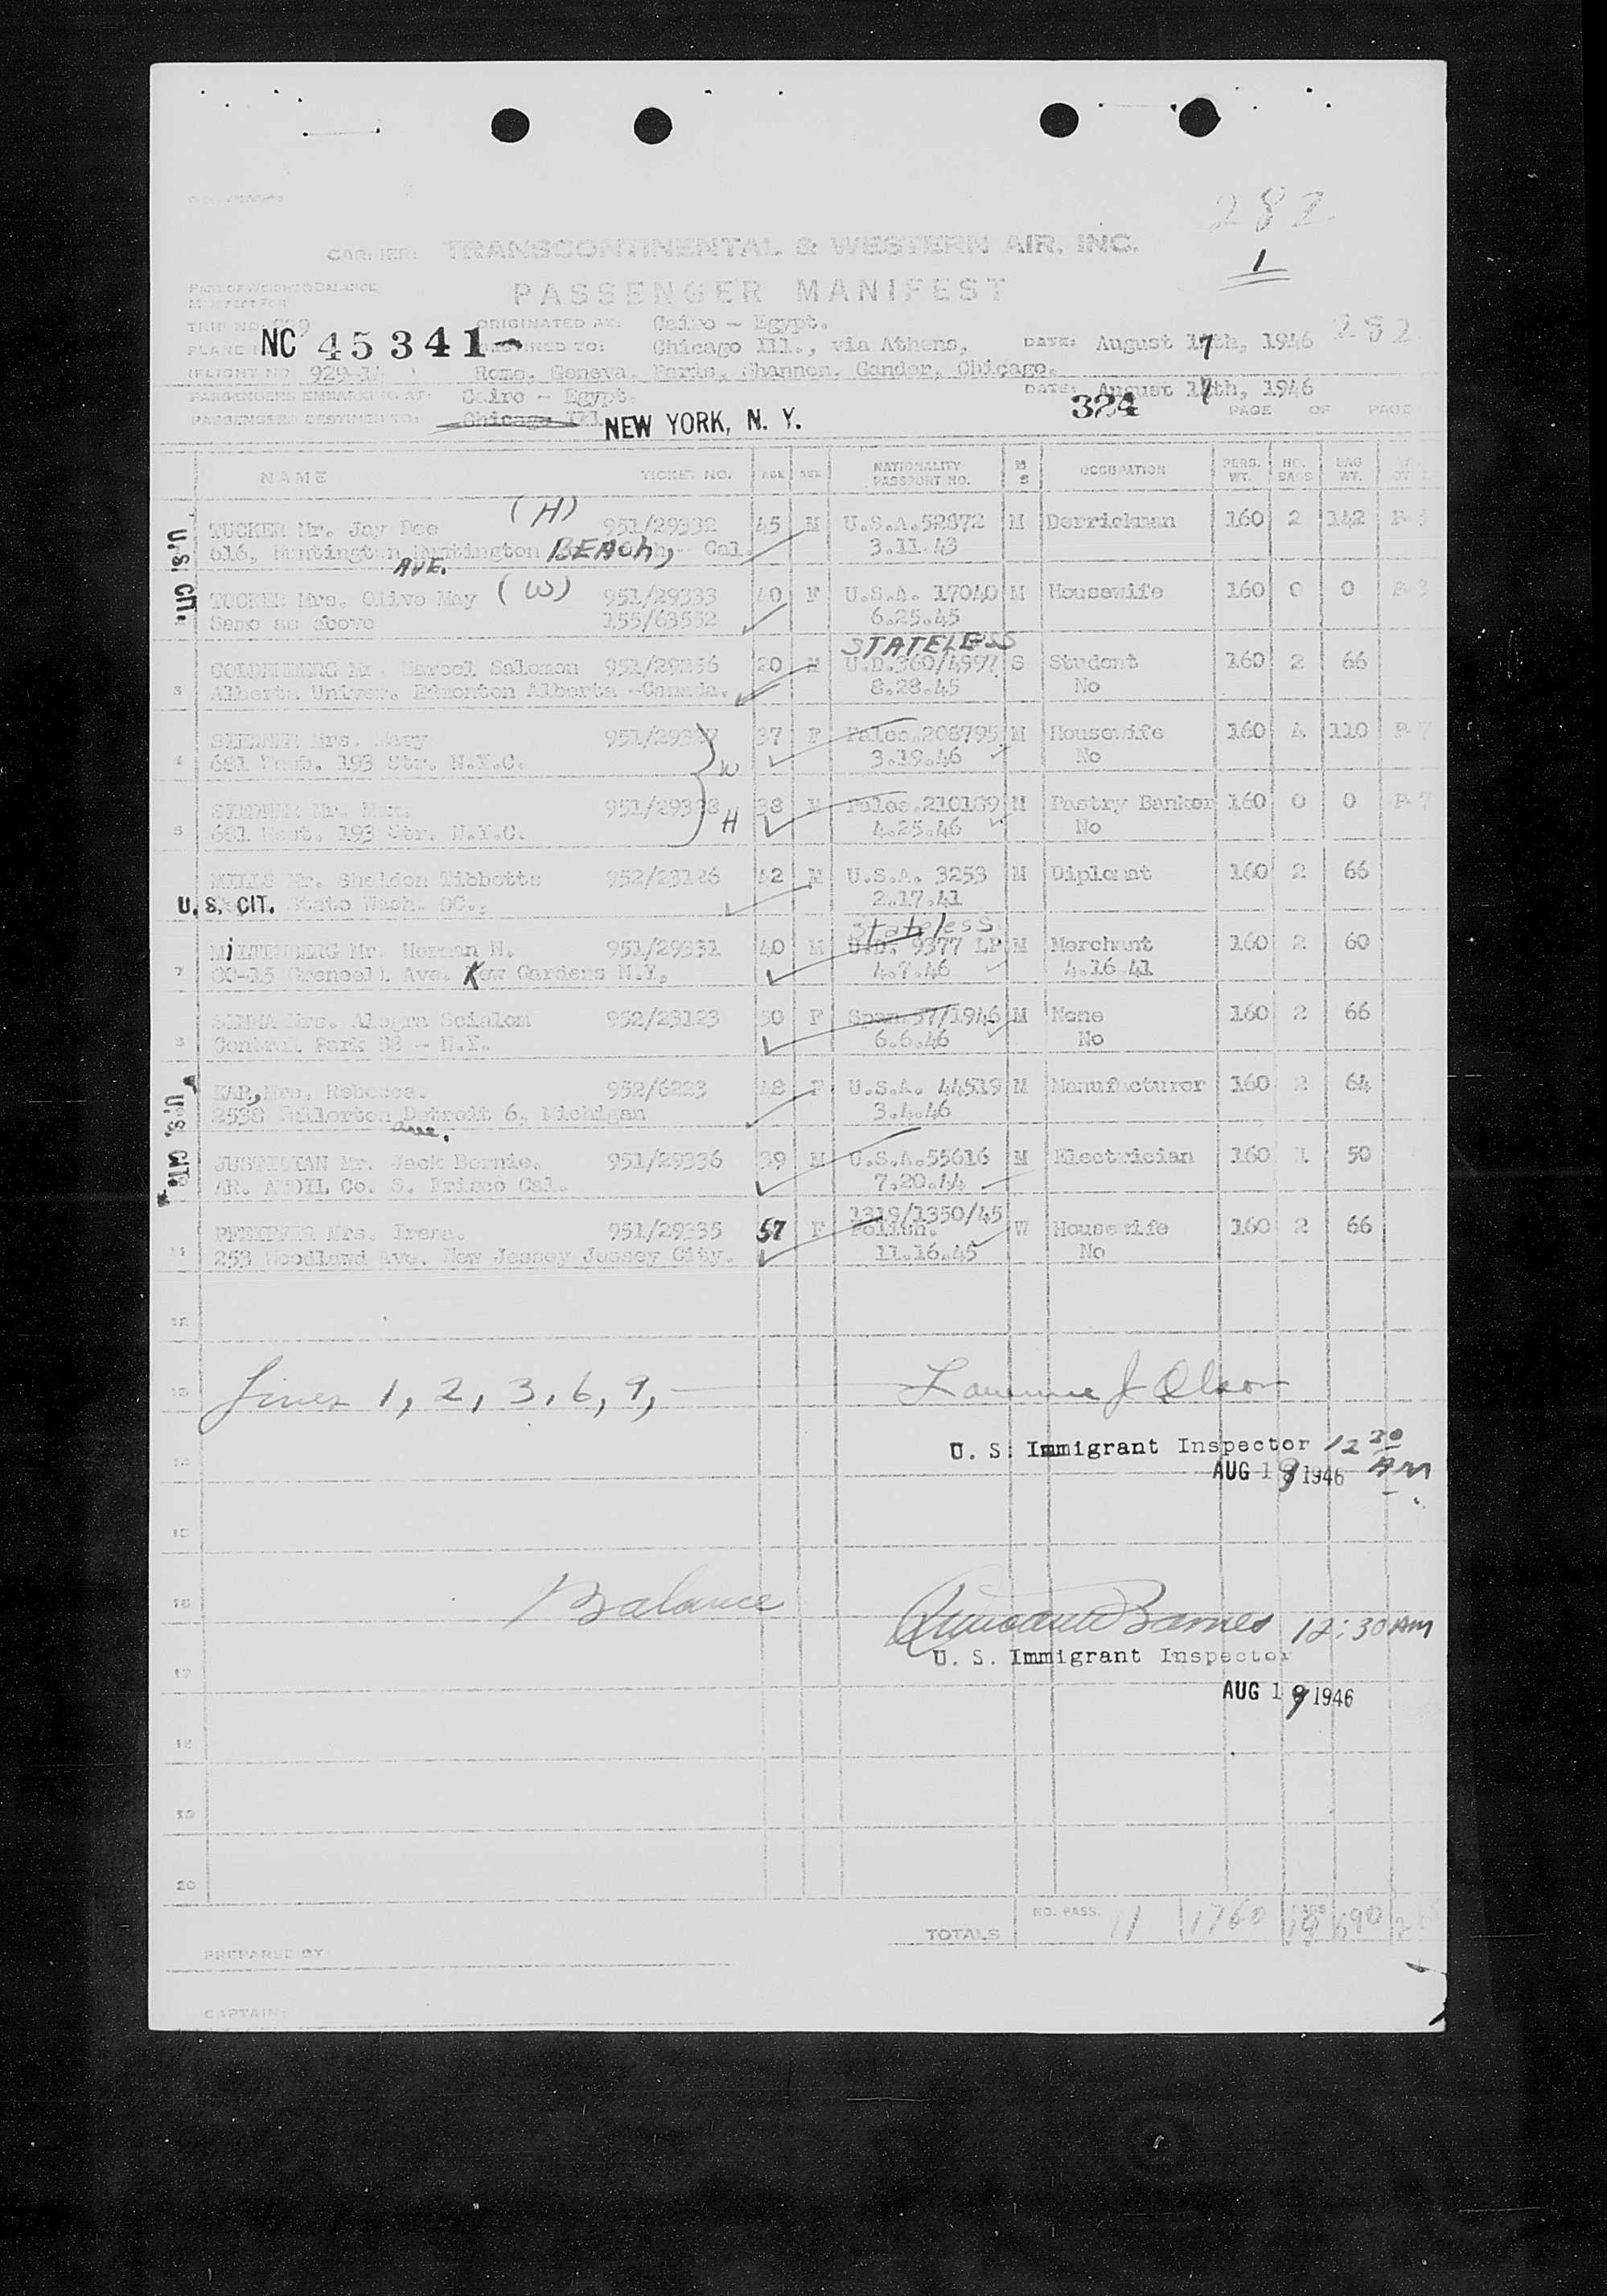 282
CARRIER: TRANSCONTINENTAL & WESTERN AIR, INC.
1
PART OF WEIGHT & BALANCE
MANIFEST FOR
PASSENGER MANIFEST
TRIP NO. 929 ORIGINATED AT: Cairo - Egypt.
282
PLANE NC 45341 DESTINED TO: Chicago Ill., via Athens, DATE: August 17th, 1946
(FLIGHT NO 929-14 ) Rome, Geneva, Paris, Shannon, Gander, Chicago.
PASSENGERS EMBARKING AT: Cairo - Egypt. DATE: August 17th, 1946
PASSENGERS DESTINED TO: Chicago Ill. NEW YORK, N. Y. 324 PAGE OF PAGE
NAME TICKET NO. AGE SEX NATIONALITY PASSPORT NO. M S OCCUPATION PERS. WT. NO. BAGS BAG WT.
U.S. CIT.
(H)
TUCKER Mr. Jay Dee 951/29332 45 M U.S.A.52872 M Derrickman 160 2 142
616, Huntington Huntington BEACh, Cal. 3.11.43
AVE.
TUCKER Mrs. Olive May (W) 951/29333 40 F U.S.A. 17040 M Housewife 160 0 0
Same as above 155/63552 6.25.45
STATELESS
GOLDENBERG Mr. Marcel Salomon 951/29256 20 M U.D.360/4997 S Student 160 2 66
3 Alberta Univer. Edmonton Alberta -Canada. 8.28.45 No
Mrs. Mary 951/29337 37 F Pales.208795 M Housewife 160 4 110
4 681 West. 193 Str. N.Y.C. W 3.19.46 No
Mr. 951/29338 38 M Pales.210189 M Pastry Banker 160 0 0
5 681 West. 193 Str. N.Y.C. H 4.25.46 No
MILLS Mr. Sheldon Tibbetts 952/23126 42 M U.S.A. 3253 M Diplomat 160 2 66
U. S. CIT. State Wash. DC., 2.17.41
Stateless
MiLTENBERG Mr. Herman N. 951/29331 40 M U.D. 9377 LP M Merchant 160 2 60
7 80-15 Grenfell Ave. Kew Gardens N.Y. 4.9.46 4.16 41
Mrs. Alegra Scialom 952/23123 50 F Span.57/1946 M None 160 2 66
8 Central Park 88 - N.Y. 6.6.46 No
U.S. CIT.
KAR, Mrs. Rebecca. 952/6223 48 F U.S.A. 44519 M Manufacturer 160 2 64
2538 Fullerton Detroit 6, Michigan 3.4.46
ave.
JUSTINIAN Mr. Jack Bernie. 951/29336 39 M U.S.A.55616 M Electrician 160 1 50
AR. Co. S. Frisco Cal. 7.20.44
1319/1350/45
PFEIFFER Mrs. Irena. 951/29335 57 F Polish. W Housewife 160 2 66
11 253 Woodland Ave. New Jessey Jessey City. 11.16.45 No
12
13 Lines 1, 2, 3, 6, 9, Lawrence J Olson
U. S. Immigrant Inspector 12 30 AM
14 AUG 19 1946
15
16 Balance Barnes 12:30 AM
U. S. Immigrant Inspector
17
AUG 19 1946
18
19
20
TOTALS NO. PASS. 11 1760 19 690
PREPARED BY
CAPTAIN: